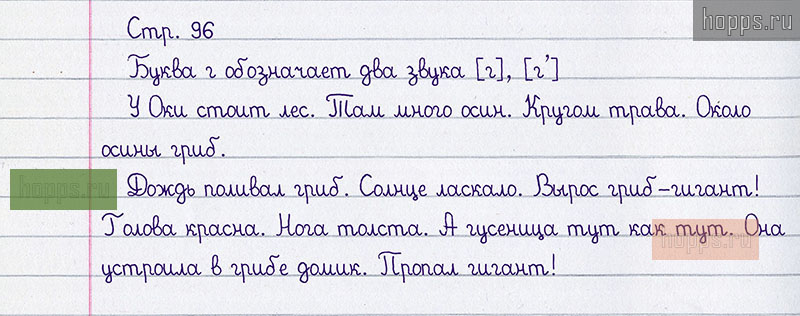 hopps.ru
Стр. 96
Буква г обозначает два звука [г], [г']
У Оки стоит лес. Там много осин. Кругом трава. Около
осины гриб.
hopps.ru
Дождь поливал гриб. Солнце ласкало. Вырос гриб-гигант!
Голова красна. Нога толста. А гусеница тут как тут. Она
hopps.ru
устроила в грибе домик. Пропал гигант!